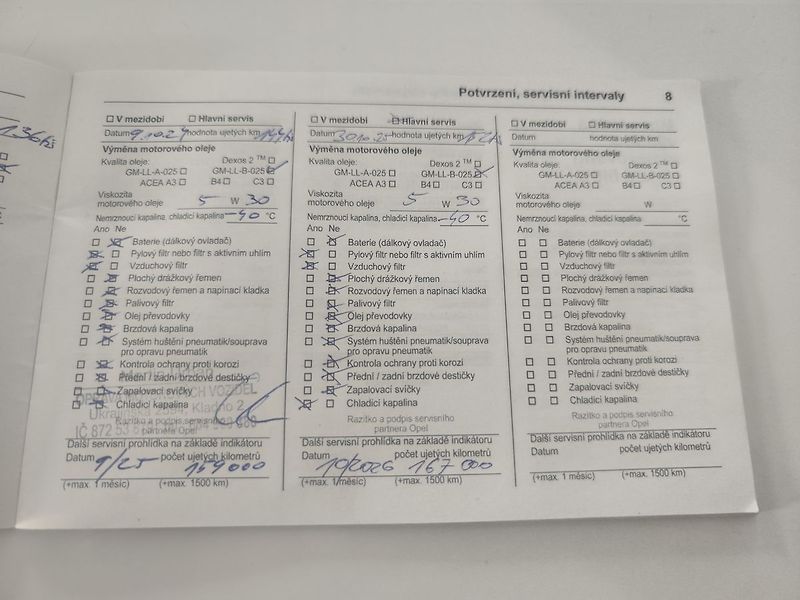 136
Potvrzení, servisní intervaly 8
☐ V mezidobí ☐ Hlavní servis
Datum 9.10.24 hodnota ujetých km
Výměna motorového oleje
Kvalita oleje: Dexos 2 ™ ☐
GM-LL-A-025 ☐ GM-LL-B-025 ☒
ACEA A3 ☐ B4 ☐ C3 ☐
Viskozita
motorového oleje 5 W 30
Nemrznoucí kapalina, chladicí kapalina -40 °C
Ano Ne
☐ ☒ Baterie (dálkový ovladač)
☒ ☐ Pylový filtr nebo filtr s aktivním uhlím
☒ ☐ Vzduchový filtr
☐ ☒ Plochý drážkový řemen
☐ ☒ Rozvodový řemen a napínací kladka
☐ ☒ Palivový filtr
☐ ☒ Olej převodovky
☐ ☒ Brzdová kapalina
☐ ☒ Systém huštění pneumatik/souprava
pro opravu pneumatik
☐ ☒ Kontrola ochrany proti korozi
☐ ☒ Přední / zadní brzdové destičky
☐ ☒ Zapalovací svíčky
☐ ☒ Chladicí kapalina
VOZIDEL
Ukrajinská Kladno 2
IČ 872 53
Razítko a podpis servisního
partnera Opel
Další servisní prohlídka na základě indikátoru
Datum 9/25 počet ujetých kilometrů 159000
(+max. 1 měsíc) (+max. 1500 km)
☐ V mezidobí ☐ Hlavní servis
Datum 30.10.25 hodnota ujetých km
Výměna motorového oleje
Kvalita oleje: Dexos 2 ™ ☐
GM-LL-A-025 ☐ GM-LL-B-025 ☒
ACEA A3 ☐ B4 ☐ C3 ☐
Viskozita
motorového oleje 5 W 30
Nemrznoucí kapalina, chladicí kapalina -40 °C
Ano Ne
☐ ☒ Baterie (dálkový ovladač)
☒ ☐ Pylový filtr nebo filtr s aktivním uhlím
☒ ☐ Vzduchový filtr
☐ ☒ Plochý drážkový řemen
☐ ☒ Rozvodový řemen a napínací kladka
☐ ☒ Palivový filtr
☐ ☒ Olej převodovky
☐ ☒ Brzdová kapalina
☐ ☒ Systém huštění pneumatik/souprava
pro opravu pneumatik
☐ ☒ Kontrola ochrany proti korozi
☐ ☒ Přední / zadní brzdové destičky
☐ ☒ Zapalovací svíčky
☒ ☐ Chladicí kapalina
Razítko a podpis servisního
partnera Opel
Další servisní prohlídka na základě indikátoru
Datum 10/2026 počet ujetých kilometrů 167 000
(+max. 1 měsíc) (+max. 1500 km)
☐ V mezidobí ☐ Hlavní servis
Datum hodnota ujetých km
Výměna motorového oleje
Kvalita oleje: Dexos 2 ™ ☐
GM-LL-A-025 ☐ GM-LL-B-025 ☐
ACEA A3 ☐ B4 ☐ C3 ☐
Viskozita
motorového oleje W
Nemrznoucí kapalina, chladicí kapalina °C
Ano Ne
☐ ☐ Baterie (dálkový ovladač)
☐ ☐ Pylový filtr nebo filtr s aktivním uhlím
☐ ☐ Vzduchový filtr
☐ ☐ Plochý drážkový řemen
☐ ☐ Rozvodový řemen a napínací kladka
☐ ☐ Palivový filtr
☐ ☐ Olej převodovky
☐ ☐ Brzdová kapalina
☐ ☐ Systém huštění pneumatik/souprava
pro opravu pneumatik
☐ ☐ Kontrola ochrany proti korozi
☐ ☐ Přední / zadní brzdové destičky
☐ ☐ Zapalovací svíčky
☐ ☐ Chladicí kapalina
Razítko a podpis servisního
partnera Opel
Další servisní prohlídka na základě indikátoru
Datum počet ujetých kilometrů
(+max. 1 měsíc) (+max. 1500 km)